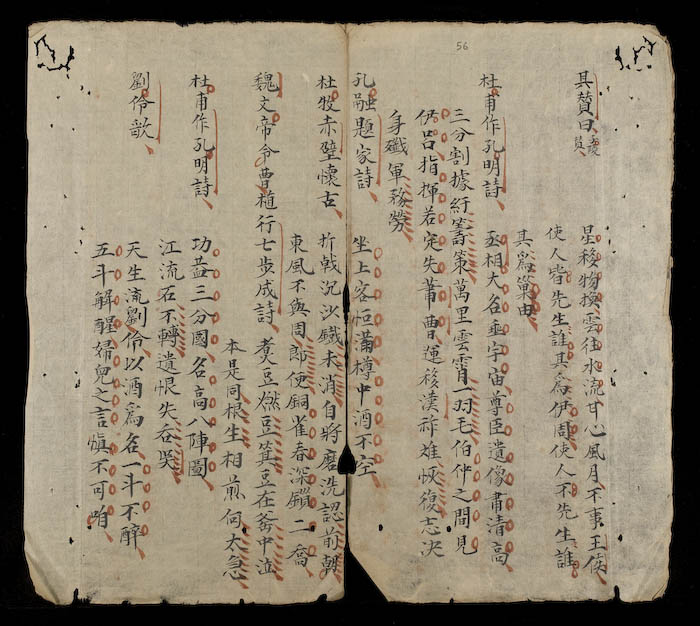 56
其贊曰
星移物換雲往水流甘心風月不事王侯
使人皆先生誰其為伊周使人不先生誰
其為巢由
杜甫作孔明詩
丞相大名垂宇宙尊臣遺像肅清高
三分割據紆籌策萬里雲霄一羽毛伯仲之間見
伊呂指揮若定失蕭曹運移漢祚難恢復志決
身殲軍務勞
孔融題家詩
坐上客恒滿樽中酒不空
杜牧赤壁懷古
折戟沉沙鐵未消自將磨洗認前朝
東風不與周郎便銅雀春深鎖二喬
魏文帝令曹植行七步成詩
煑豆燃豆萁豆在釜中泣
本是同根生相煎何太急
杜甫作孔明詩
功葢三分國名高八陣圖
江流石不轉遺恨失吞吳
劉伶歌
天生流劉伶以酒為名一斗不醉
五斗解酲婦兒之言愼不可